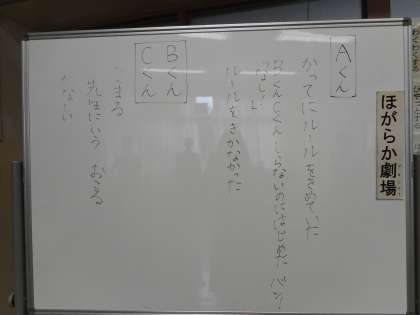 ほがらか劇場
Aくん
かってにルールをきめていた
Bくん Cくん しらないのにはじめた
ルールをきかなかった
Bくん
Cくん
こまる
先生にいう おこる